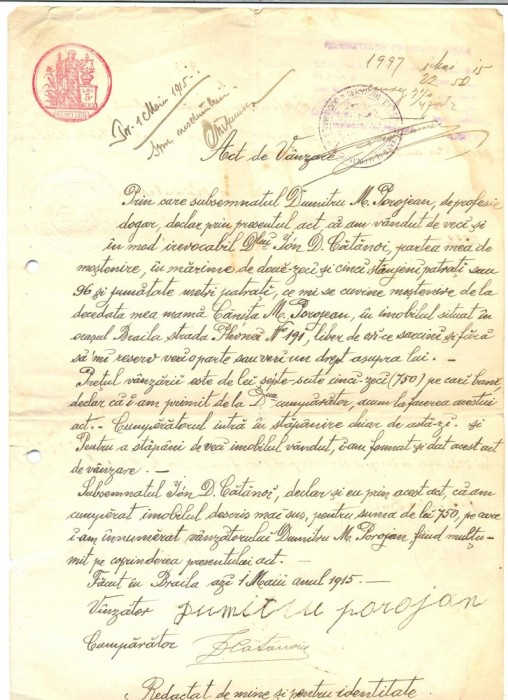 1997 1 Mai 15
Dr. 1 Maiu 915.
Act de Vânzare
Prin care subsemnatul Dumitru M. Porojean, de profesie
dogar, declar prin presentul act că am vândut de veci și
în mod irevocabil Dlui Ion D. Cătănoi, partea mea de
moștenire, în mărime de două-zeci și cinci stânjeni patrați sau
96 și jumătate metri patrați, ce mi se cuvine moștenire de la
decedata mea mamă M. Porojean, în imobilul situat în
orașul Braila strada Plevnă No 191, liber de ori-ce sarcini și fără
să mi reserv veri o parte sau veri un drept asupra lui. —
Prețul vânzării este de lei șepte-sute cinci-zeci (750) pe cari bani,
declar că i-am primit de la D cumpărător, acum la facerea acestui
act. - Cumpărătorul intră în stăpânire chiar de astă-zi. și
Pentru a stăpâni de veci imobilul vândut, i-am format și dat acest act
de vânzare. —
Subsemnatul Ion D. Cătănoi, declar și eu prin acest act, că am
cumpărat imobilul descris mai sus, pentru suma de lei 750, pe care
i-am innumărat vânzătorului Dumitru M. Porojan, fiind mulțu-
mit pe coprinderea presentului act. —
Făcut în Braila azi 1 Maiu anul 1915. —
Vînzător Dumitru porojan
Cumpărător D Cătănoiu
Redactat de mine și pentru identitate